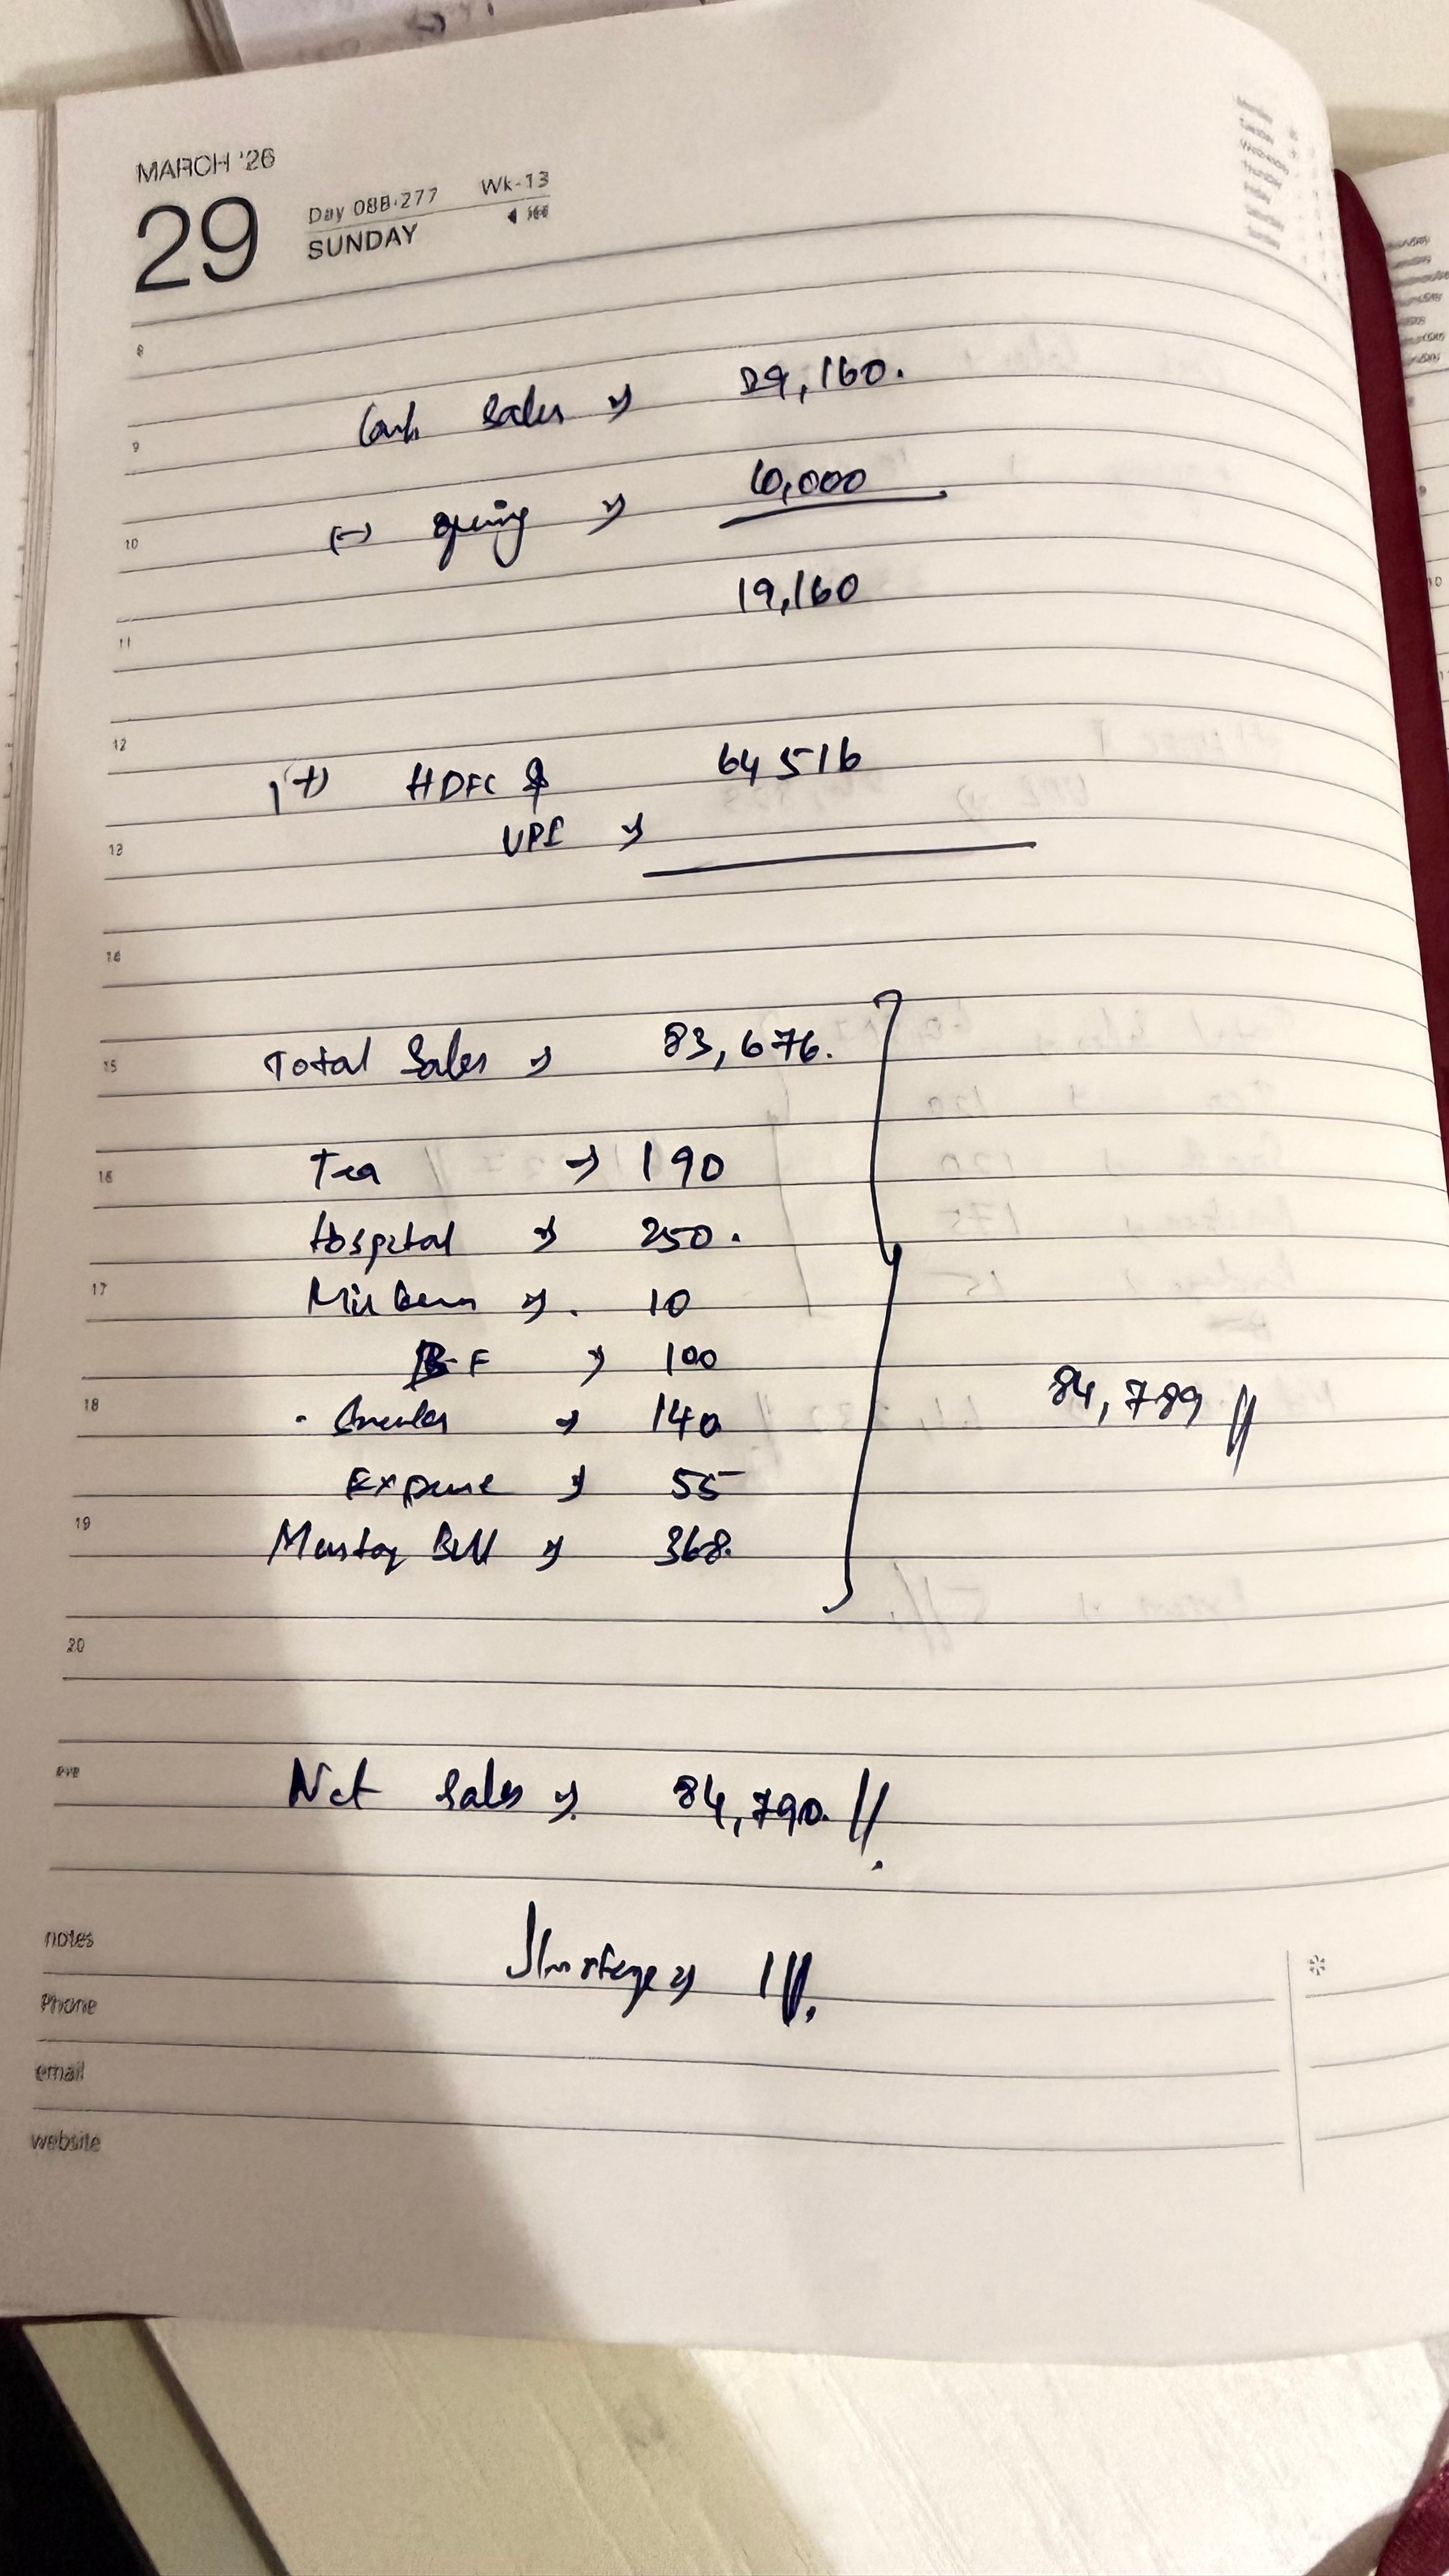 MARCH '26
29
Day 088-277 Wk-13
SUNDAY
8
9
Cash Sales → 29,160.
10
(-) opening → 10,000
19,160
11
12
(+) HDFC & 64516
UPI →
13
14
15
Total Sales → 83,676.
16
Tea → 190
Hospital → 250.
17
→ 10
B.F → 100
18
→ 140
84,789 //
Expense → 55
19
Bill → 368.
20
eve
Net Sales → 84,790. //
Shortage → 1 //.
notes
Phone
email
website